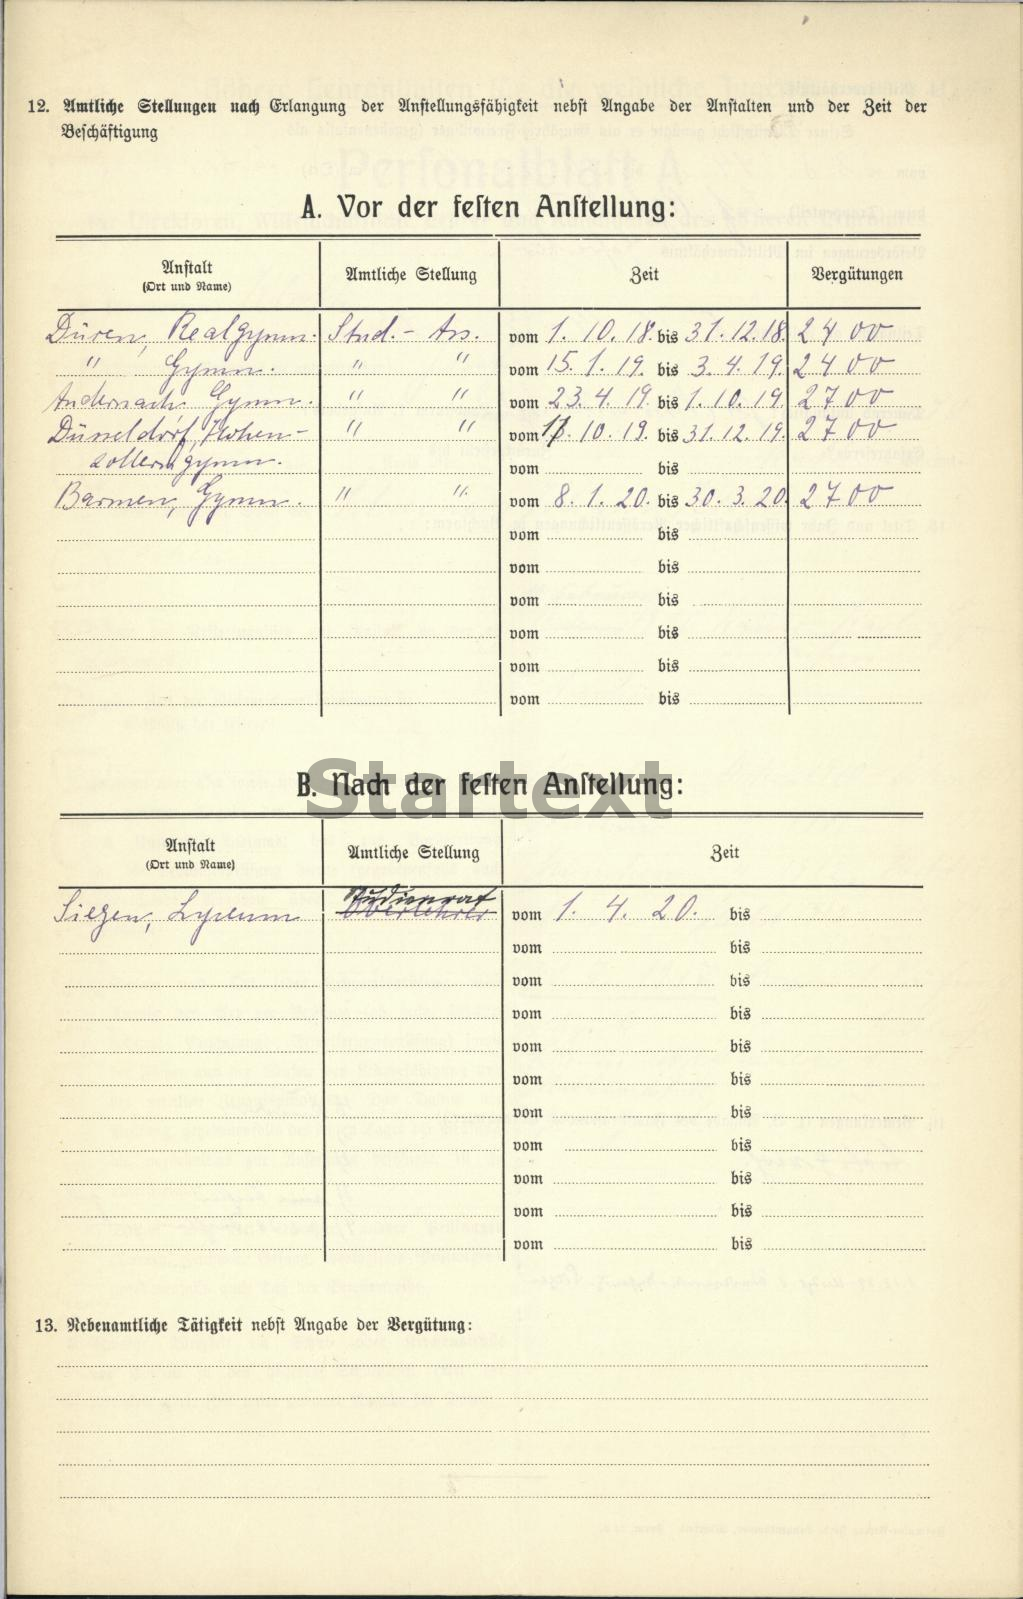 12. Amtliche Stellungen nach Erlangung der Anstellungsfähigkeit nebst Angabe der Anstalten und der Zeit der
Beschäftigung
A. Vor der festen Anstellung:
Anstalt
(Ort und Name)
Amtliche Stellung
Zeit
Vergütungen
Düren, Realgymn. Stud.- Ass. vom 1. 10. 18. bis 31. 12. 18. 2400
" Gymn. " " vom 15. 1. 19. bis 3. 4. 19. 2400
Andernach Gymn. " " vom 23. 4. 19. bis 1. 10. 19. 2700
Düsseldorf, Hohen- " " vom 10. 19. bis 31. 12. 19. 2700
zollerngymn. vom bis
Barmen, Gymn. " " vom 8. 1. 20. bis 30. 3. 20. 2700
vom bis
vom bis
vom bis
vom bis
vom bis
vom bis
B. Nach der festen Anstellung:
Startext
Anstalt
(Ort und Name)
Amtliche Stellung
Zeit
Studienrat
Siegen, Lyzeum Oberlehrer vom 1. 4. 20. bis
vom bis
vom bis
vom bis
vom bis
vom bis
vom bis
vom bis
vom bis
vom bis
vom bis
13. Nebenamtliche Tätigkeit nebst Angabe der Vergütung: